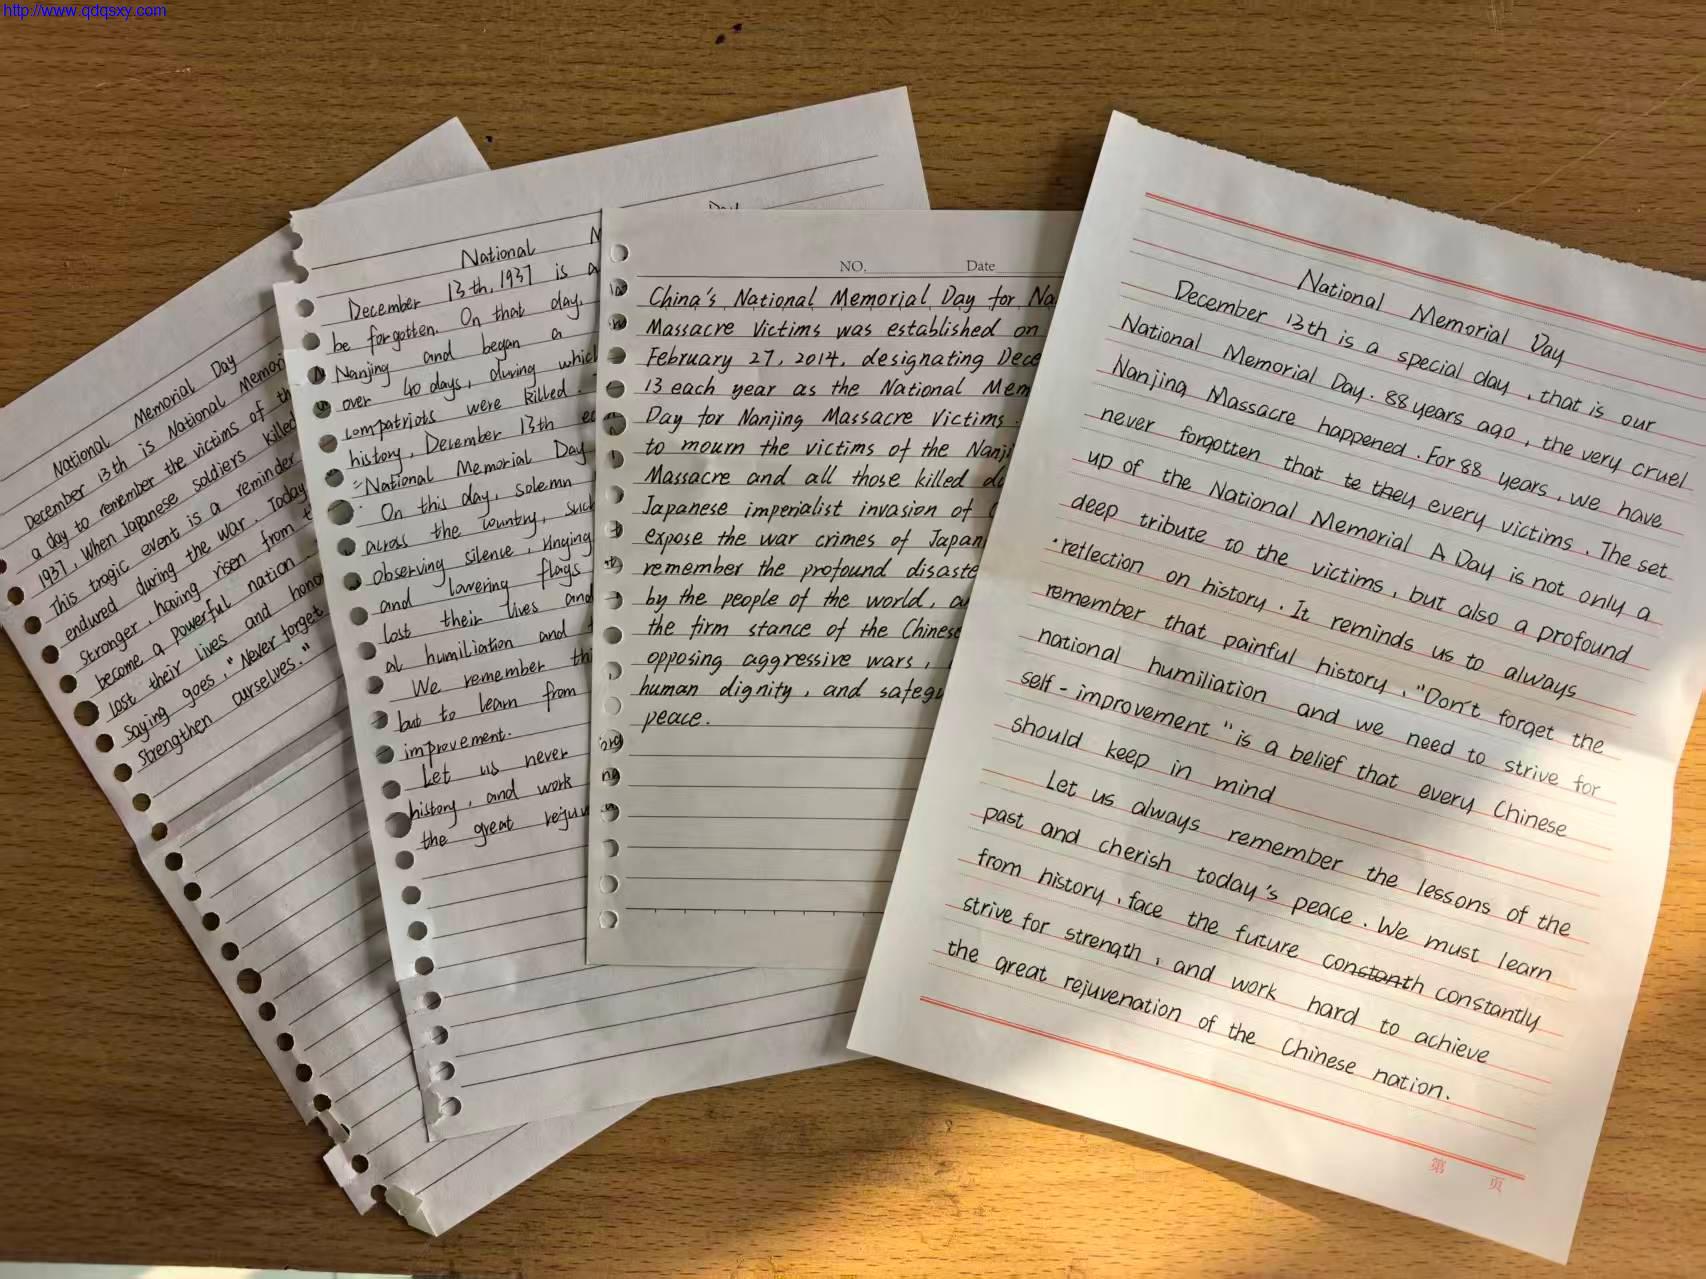 http://www.qdqsxy.com
National Memorial Day
December 13th is National Memori
a day to remember the victims of th
1937, When Japanese soldiers killed
This tragic event is a reminder
endured during the war. Today
Stronger, having risen from t
become a powerful nation
lost their lives and hono
saying goes, "Never forget
Strengthen ourselves."
National M
Day
December 13th, 1937 is a
be forgotten. On that day,
Nanjing and began a
over 40 days, during whic
compatriots were killed.
history, December 13th
"National Memorial Day
On this day, solemn
across the country, suc
observing silence, ringing
and lowering flags
lost their lives and
al humiliation and
We remember thi
but to learn from
improvement.
Let us never
history, and work
the great rejuv
NO. Date
China's National Memorial Day for Na
Massacre Victims was established on
February 27, 2014, designating Dece
13 each year as the National Mem
Day for Nanjing Massacre Victims.
to mourn the victims of the Nanji
Massacre and all those killed du
Japanese imperialist invasion of C
expose the war crimes of Japan
remember the profound disaste
by the people of the world, a
the firm stance of the Chinese
opposing aggressive wars,
human dignity, and safegu
peace.
National Memorial Day
December 13th is a special day, that is our
National Memorial Day. 88 years ago, the very cruel
Nanjing Massacre happened. For 88 years, we have
never forgotten that te they every victims. The set
up of the National Memorial A Day is not only a
deep tribute to the victims, but also a profound
reflection on history. It reminds us to always
remember that painful history, "Don't forget the
national humiliation and we need to strive for
self-improvement" is a belief that every Chinese
should keep in mind
Let us always remember the lessons of the
past and cherish today's peace. We must learn
from history, face the future constanth constantly
strive for strength, and work hard to achieve
the great rejuvenation of the Chinese nation.
第 页